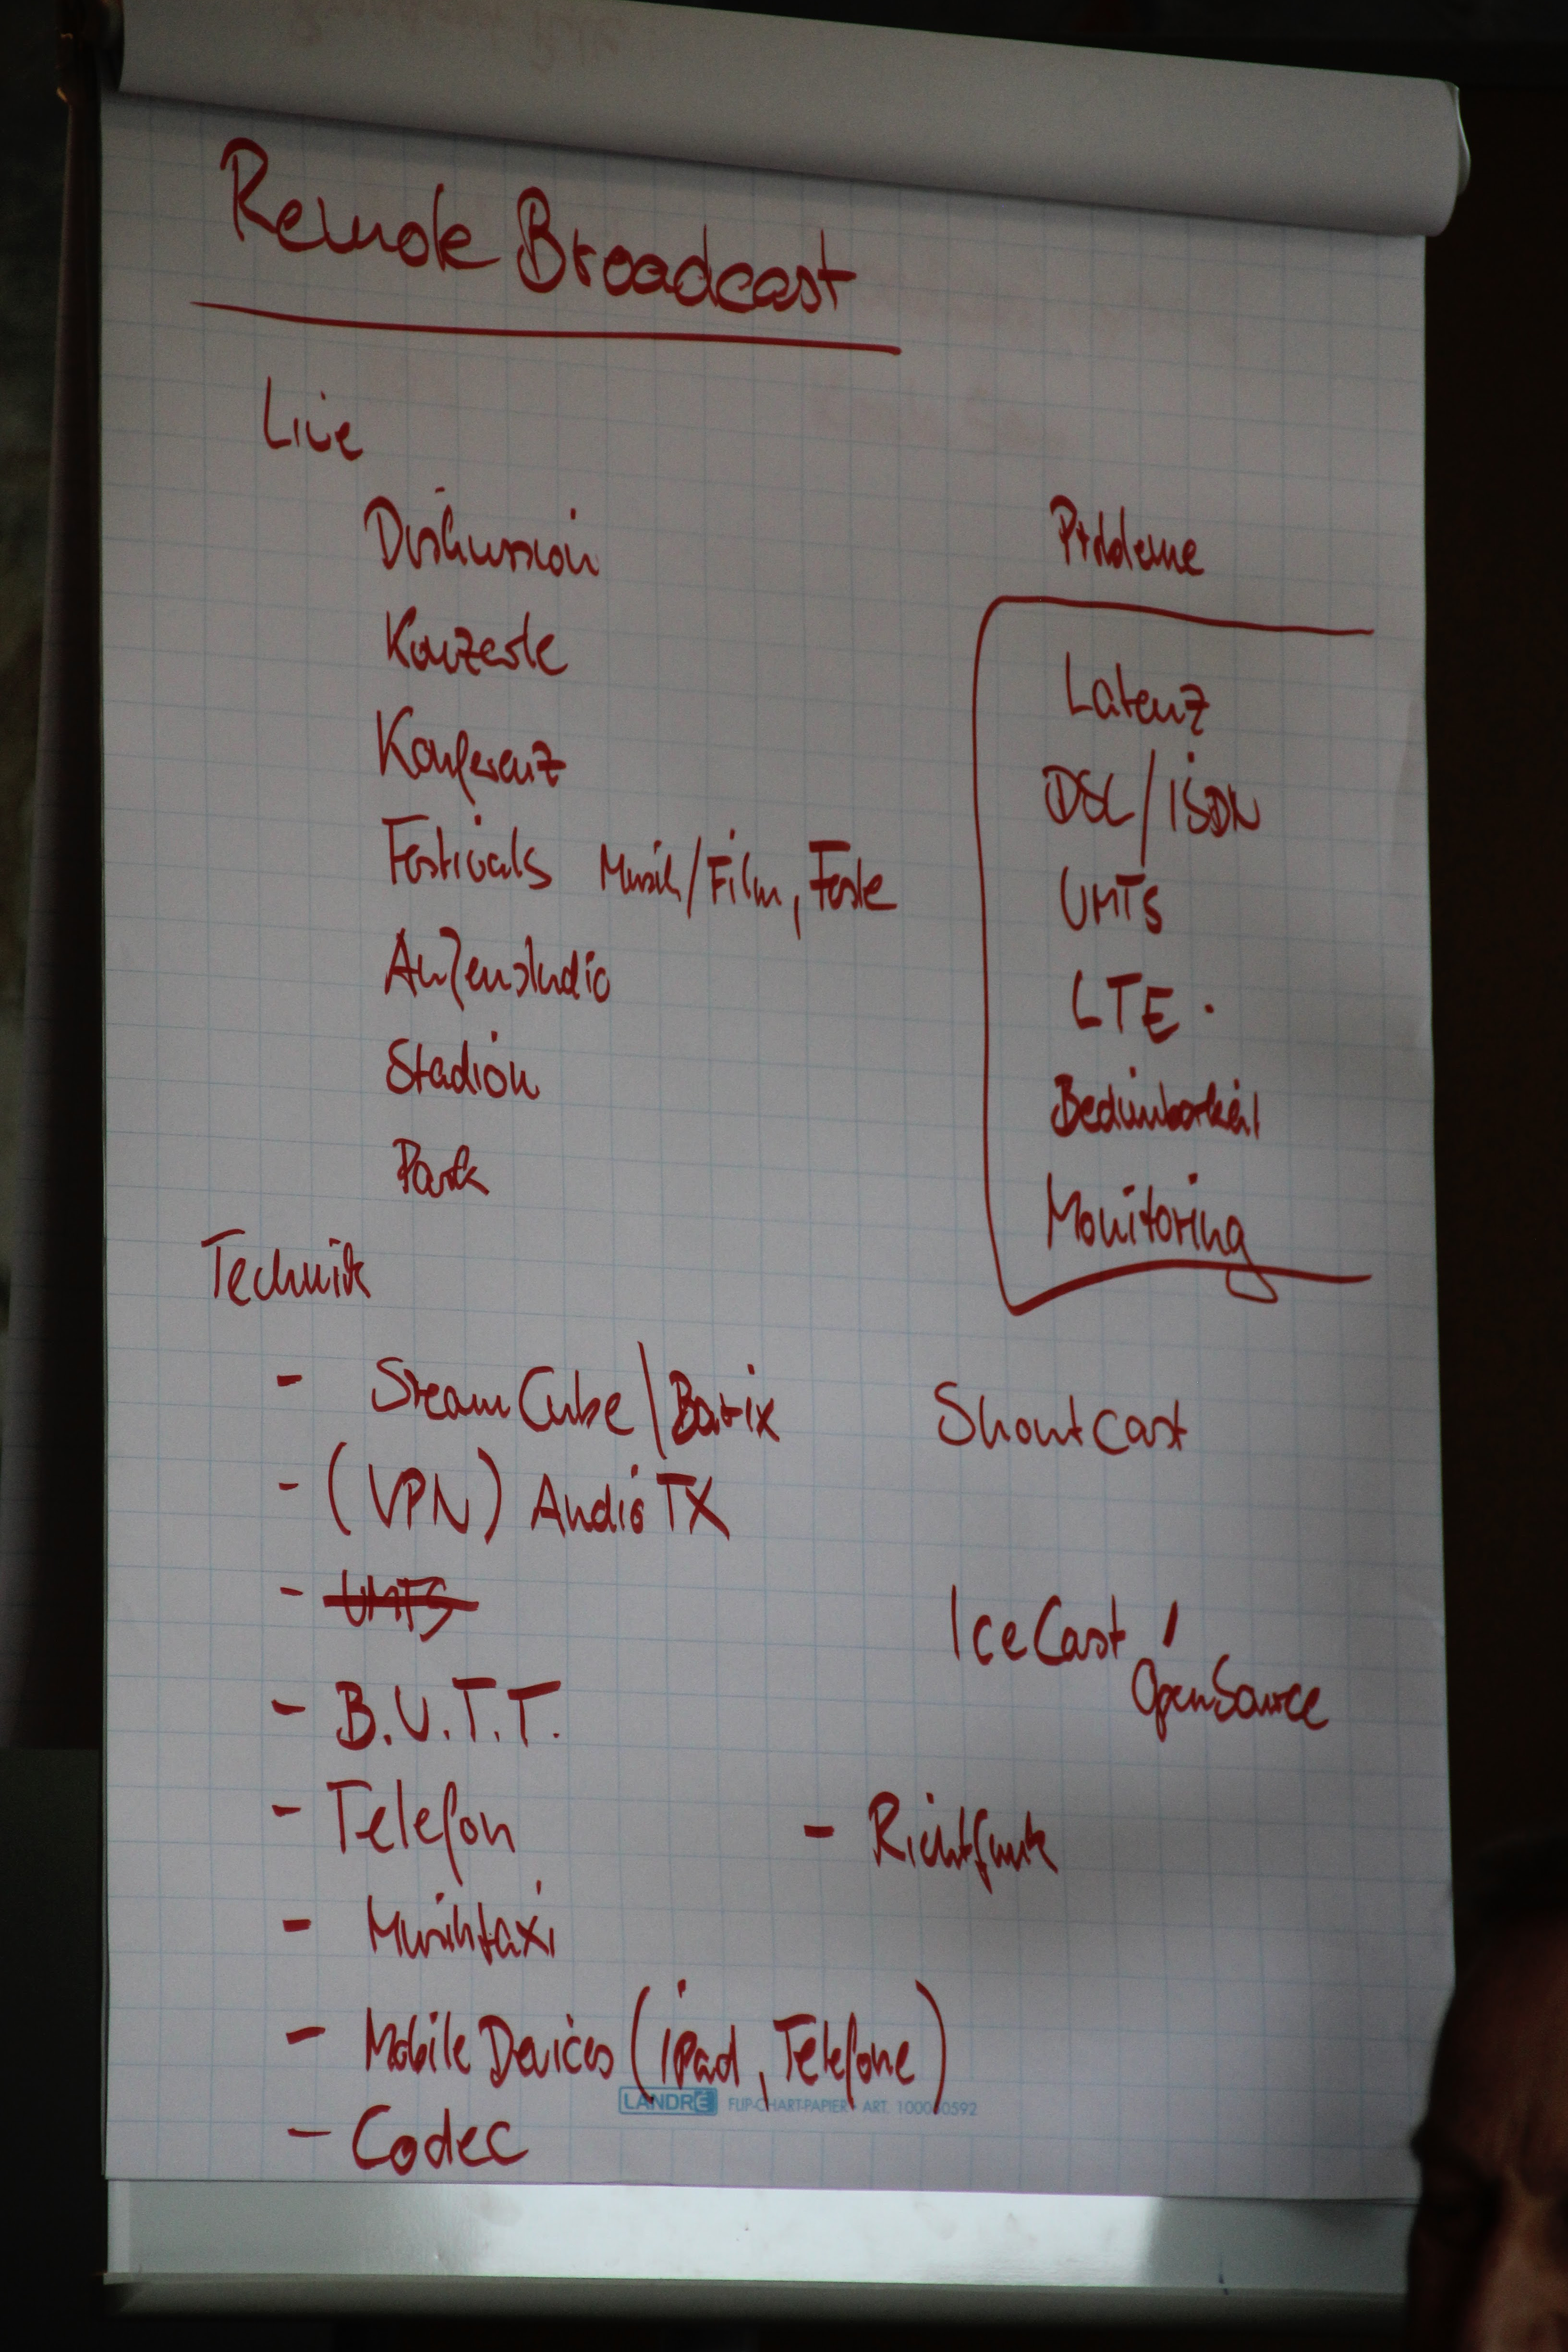 Remote Broadcast
Live
Diskussion
Konzerte
Konferenz
Festivals Musik/Film, Feste
Außenstudio
Stadion
Park
Probleme
Latenz
DSL/ISDN
UMTS
LTE
Bedienbarkeit
Monitoring
Technik
- StreamCube/Barix
ShoutCast
- (VPN) AudioTX
- UMTS
IceCast /
OpenSource
- B.U.T.T.
- Telefon
- Richtfunk
- Musiktaxi
- Mobile Devices (ipad, Telefone)
LANDRÉ FLIP-CHART-PAPIER ART.
- Codec